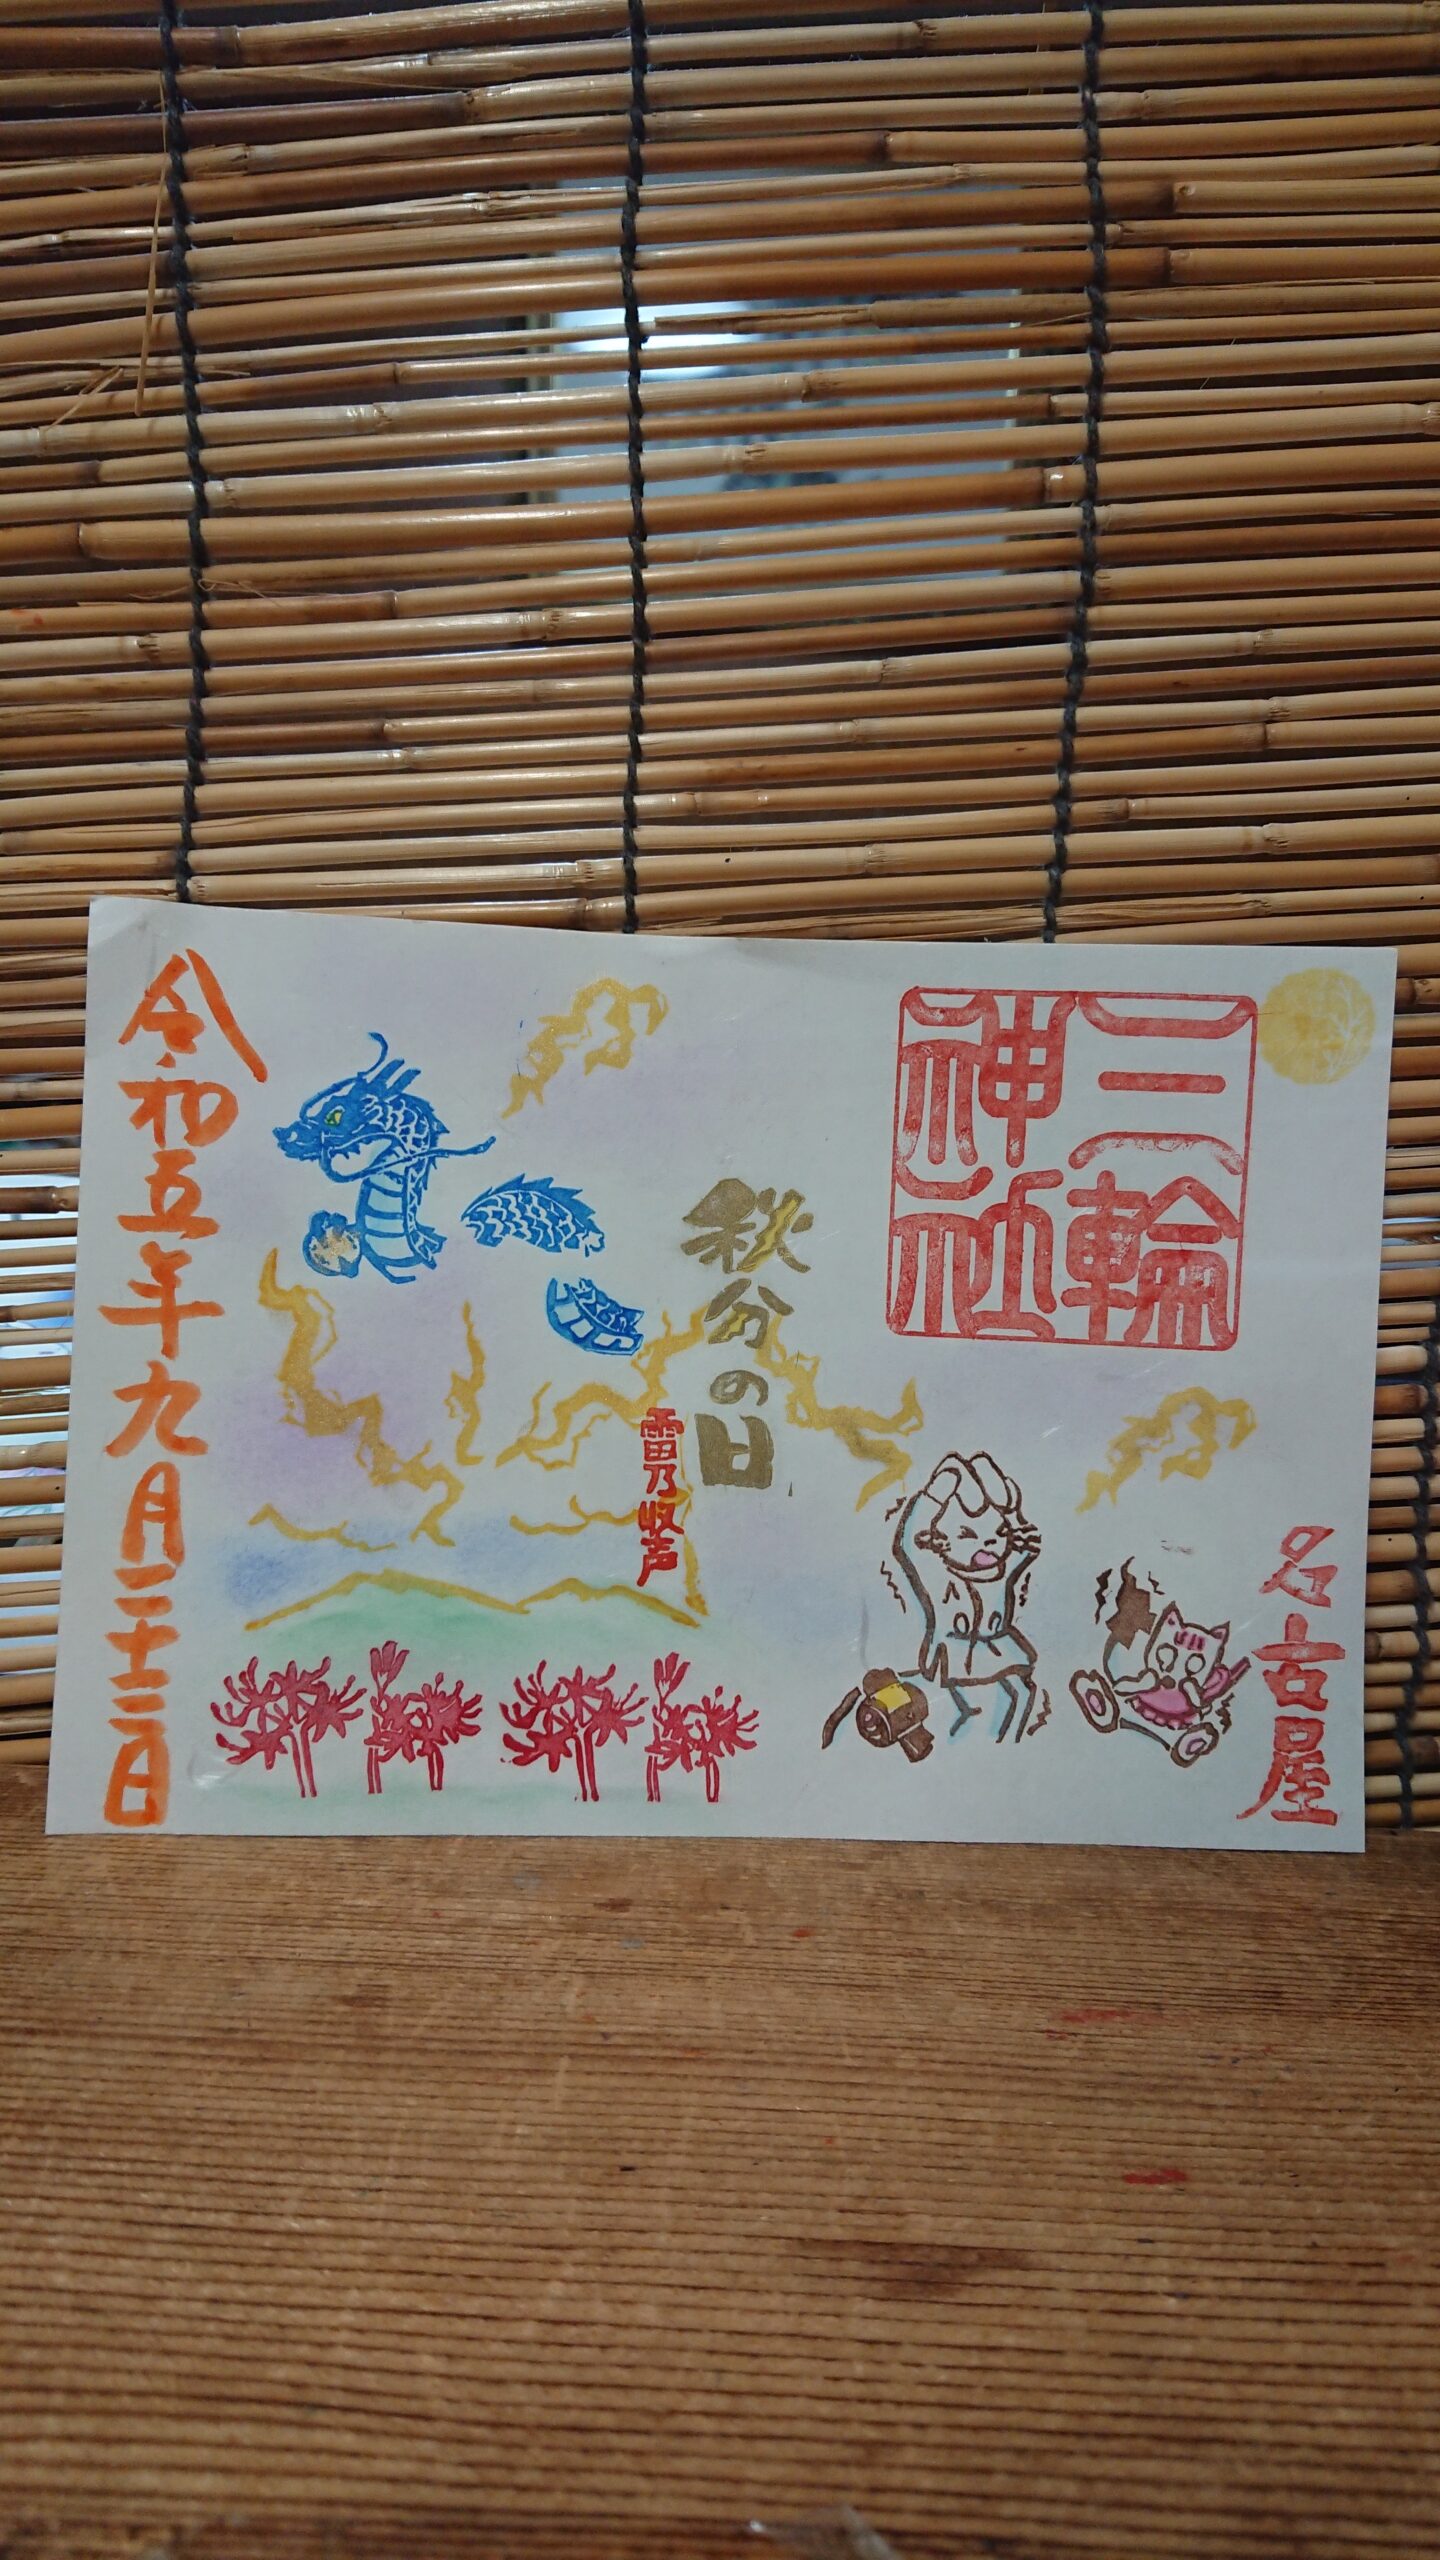 三輪
神社
名古屋
秋分の日
雷乃収声
令和五年九月二十三日